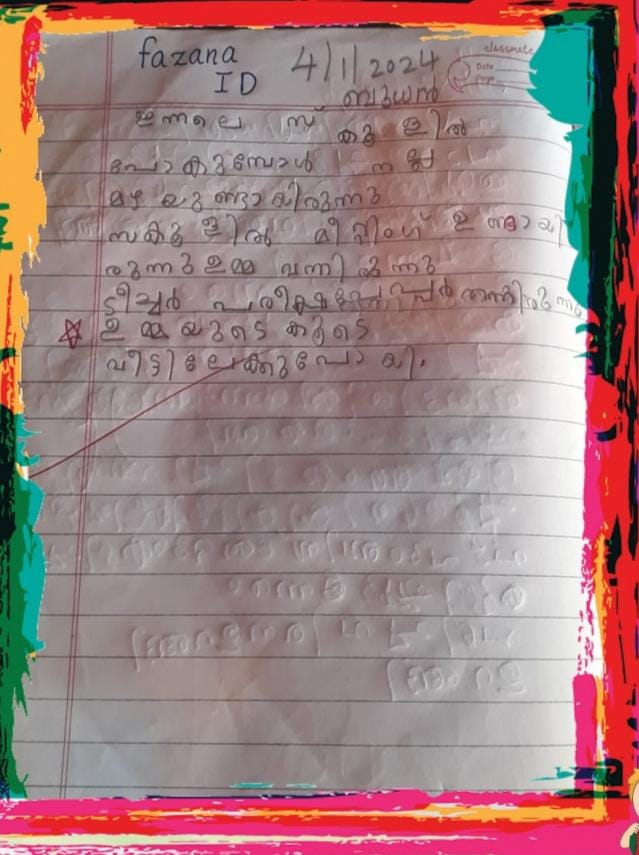 fazana 4/1/2024
1D ബുധൻ
classmate
Date
Page
ഇന്നലെ സ് കൂളിൽ
പോകുമ്പോൾ നല്ല
മഴയുണ്ടായിരുന്നു
സ്കൂളിൽ മീറ്റിംഗ് ഉണ്ടായി
രുന്നു ഉമ്മ വന്നിരുന്നു
ടീച്ചർ തന്നിരുന്നു
ഉമ്മയുടെ കൂടെ
വീട്ടിലേക്കുപോയി.